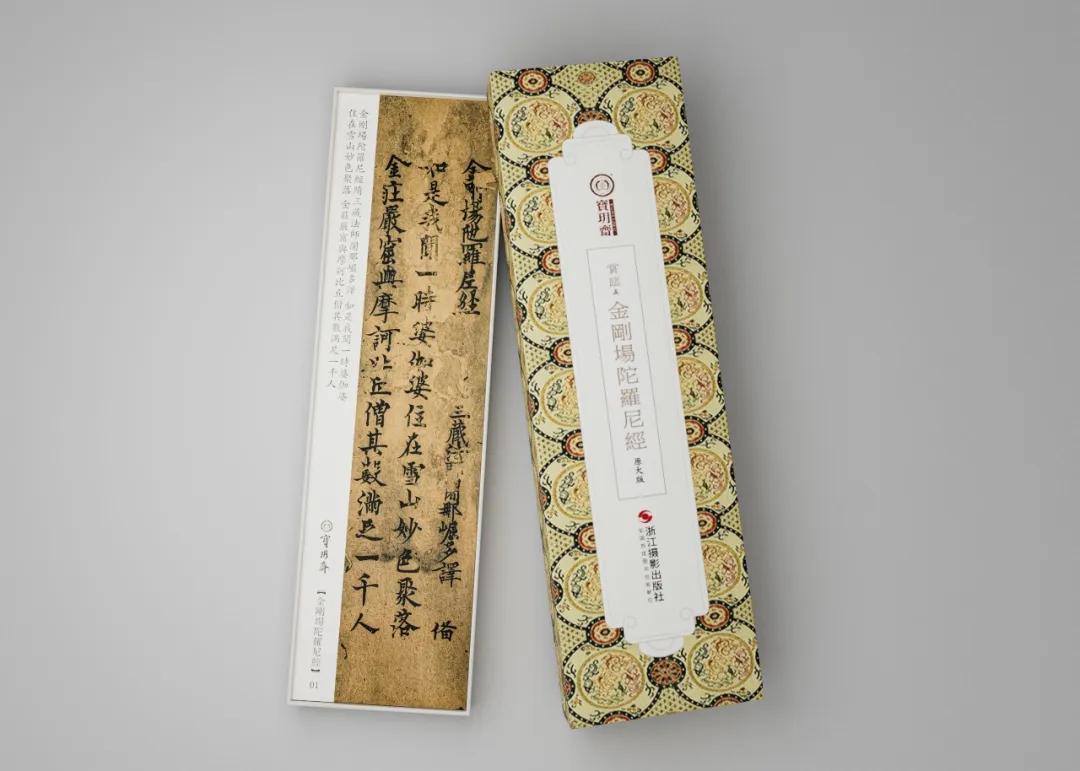 金剛場陀羅尼経
三藏 闍那崛多譯
如是我聞一時婆伽婆住在雪山妙色聚落
金莊嚴窟與摩訶比丘僧其數滿足一千人
金剛場陀羅尼經隋三藏法師闍那崛多譯 如是我聞一時婆伽婆
住在雪山妙色聚落 金莊嚴窟與摩訶比丘僧其數滿足一千人
寶玥齋
【金剛場陀羅尼經】
01
寶玥齋
金剛場陀羅尼經
原大版
浙江攝影出版社
全國百佳圖書出版單位